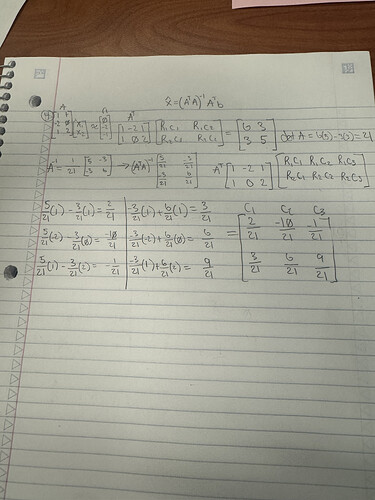 x̂ = (AᵀA)⁻¹ Aᵀb
A
Aᵀ
[1 1; -2 0; 1 2] [x₁; x₂] = [0; -2; -1] [1 -2 1; 1 0 2] [R₁C₁ R₁C₂; R₂C₁ R₂C₂] = [6 3; 3 5] det A = 6(5) - 3(3) = 21
A⁻¹ = 1/21 [5 -3; -3 6] → (AᵀA)⁻¹ [5/21 -3/21; -3/21 6/21] Aᵀ [1 -2 1; 1 0 2] [R₁C₁ R₁C₂ R₁C₃; R₂C₁ R₂C₂ R₂C₃]
C₁ C₂ C₃
5/21(1) - 3/21(1) = 2/21 -3/21(1) + 6/21(1) = 3/21
5/21(-2) - 3/21(0) = -10/21 -3/21(-2) + 6/21(0) = 6/21 = [2/21 -10/21 -1/21; 3/21 6/21 9/21]
5/21(1) - 3/21(2) = -1/21 -3/21(1) + 6/21(2) = 9/21